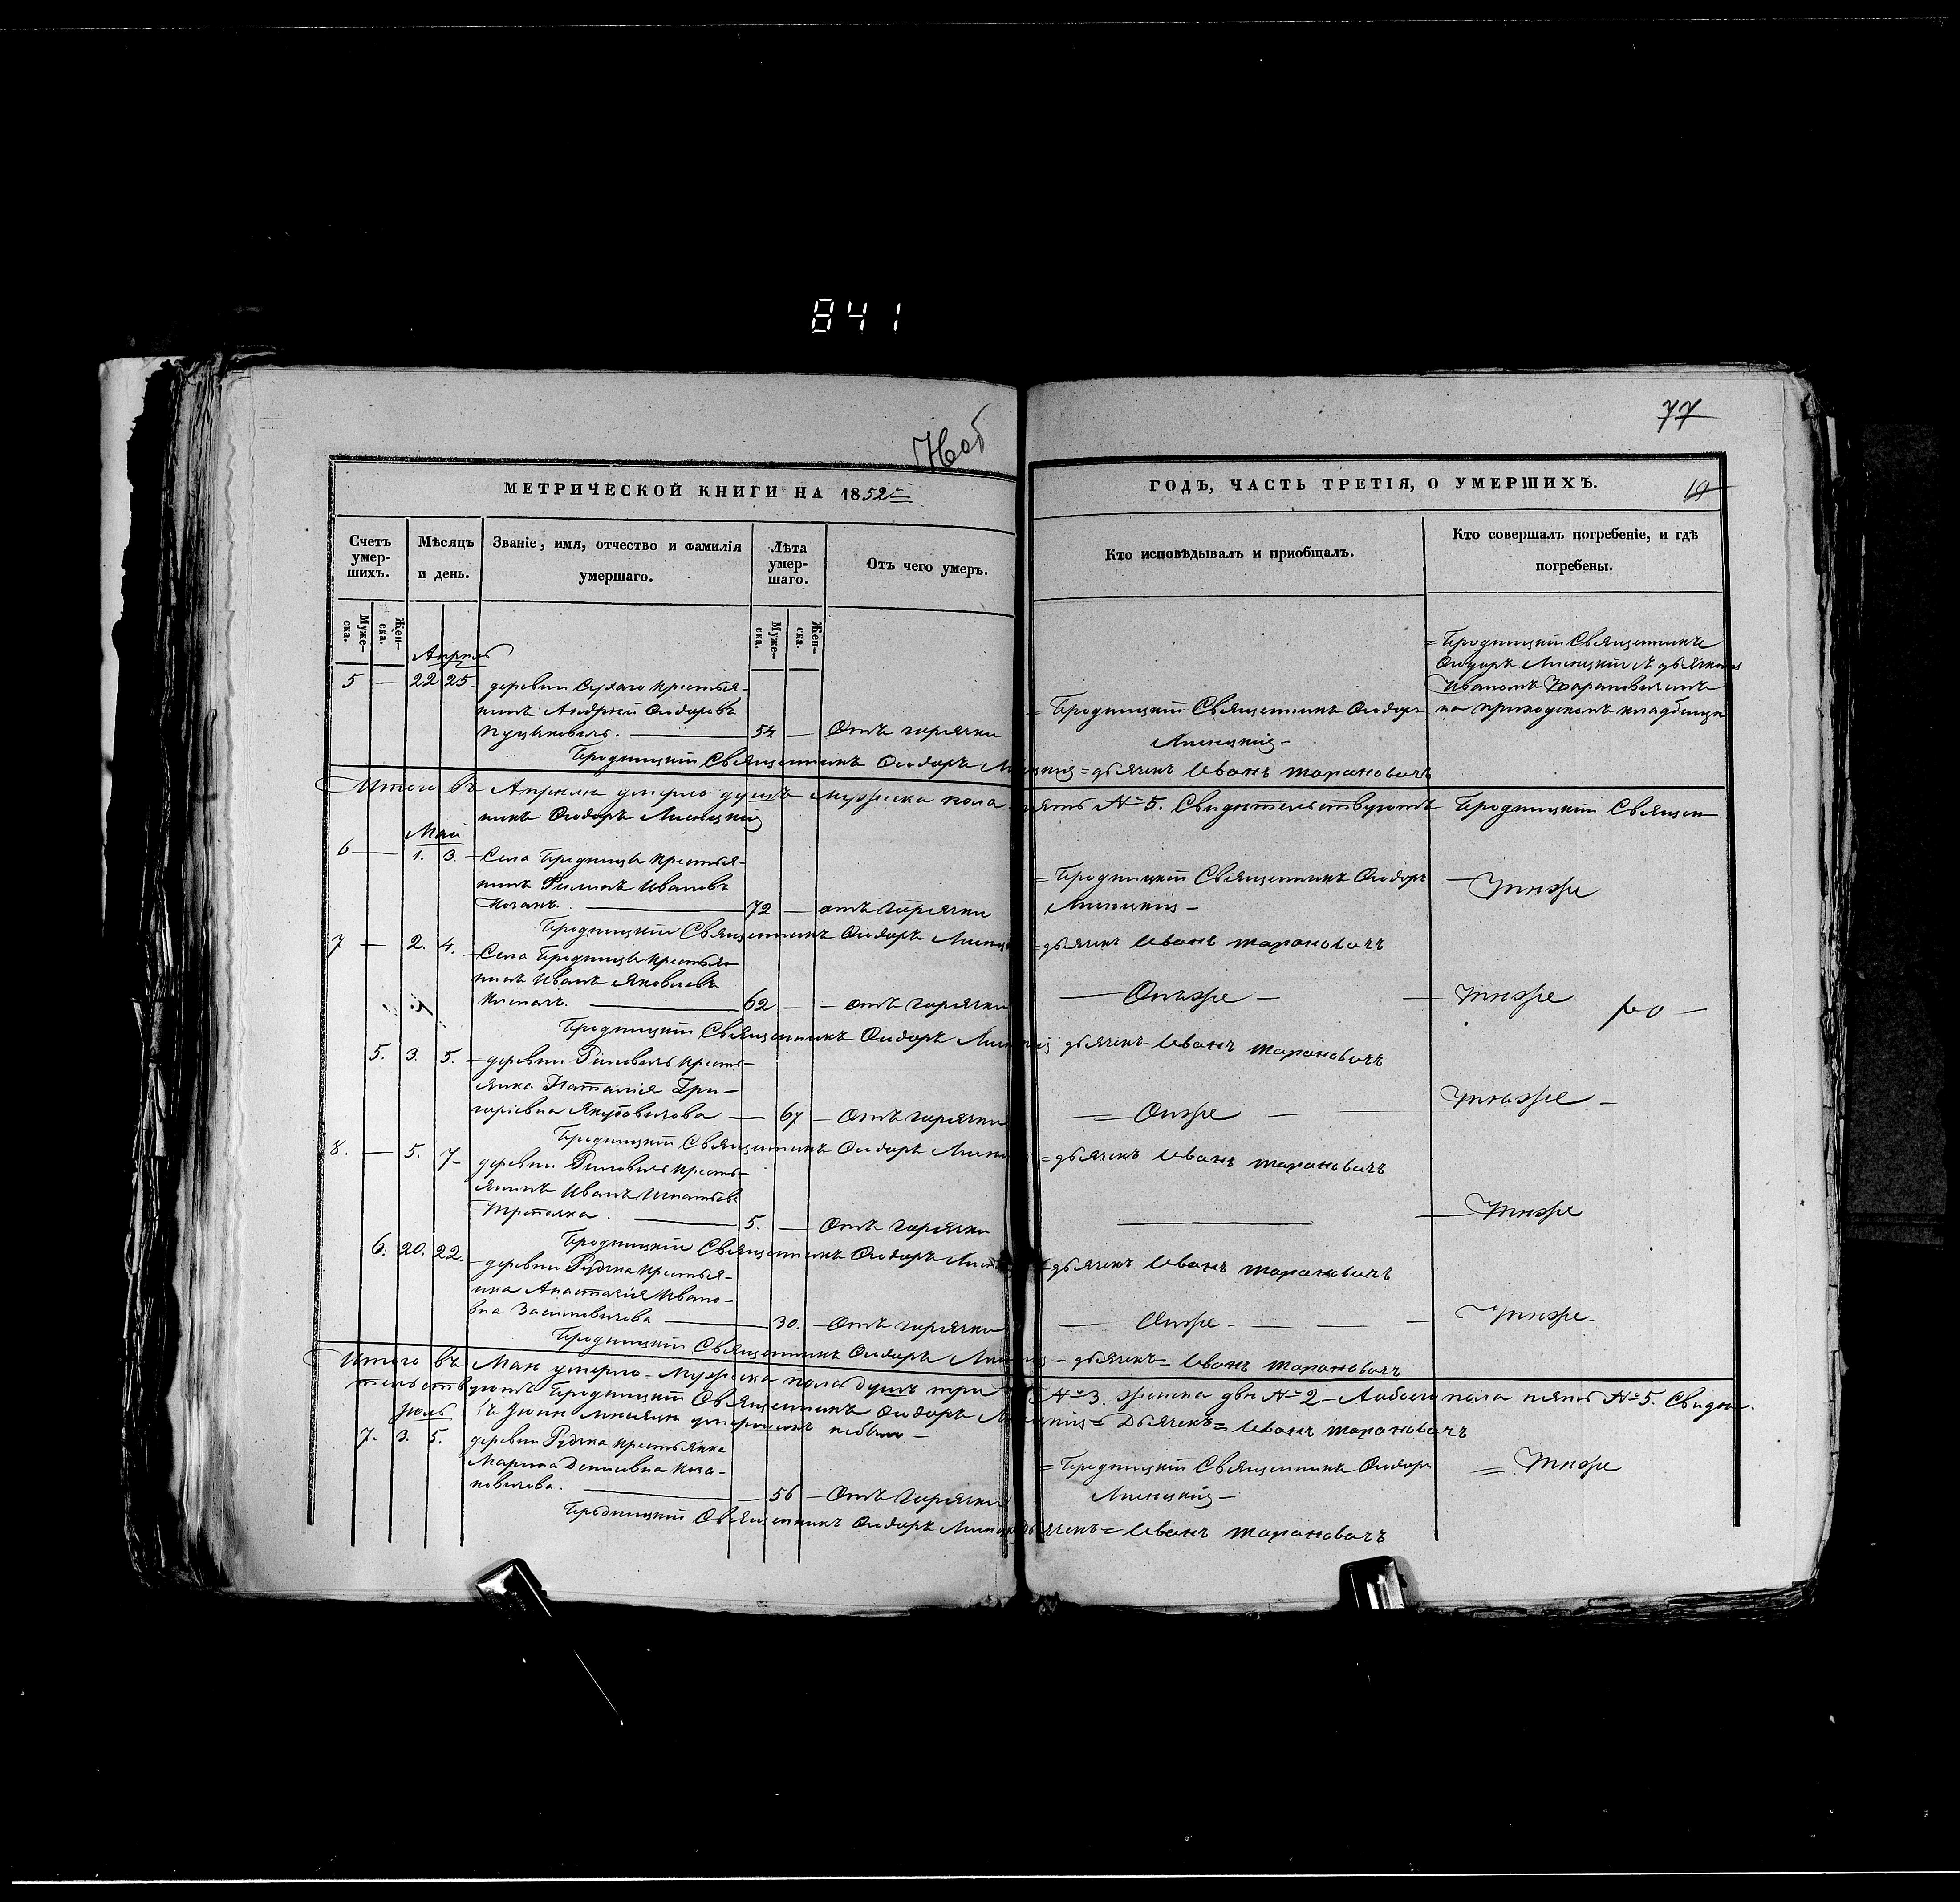 841
77
МЕТРИЧЕСКОЙ КНИГИ НА 1852
ГОДЪ, ЧАСТЬ ТРЕТІЯ, О УМЕРШИХЪ.
19
Счетъ умер-
шихъ.
Мѣсяцъ
и день.
Званіе, имя, отчество и фамилія
умершаго.
Лѣта
умер-
шаго.
Отъ чего умеръ.
Кто исповѣдывалъ и пріобщалъ.
Кто совершалъ погребеніе, и гдѣ
погребены.
Муже-
ска.
Жен-
ска.
Муже-
ска.
Жен-
ска.
Апрѣль
5 — 22 25. деревни Сухаго крестья-
нинъ Андрей Сидоровъ
— 54 — Отъ горячки
= Бродницкій Священникъ Сидоръ
Лисицкій —
= Бродницкій Священникъ
Сидоръ Лисицкій съ дьячкомъ
Иваномъ Тарановичемъ
на приходскомъ кладбищѣ
Бродницкій Священникъ Сидоръ Лисицкій = дьячекъ Иванъ Тарановичъ
Итого въ Апрѣлѣ умерло душъ мужеска пола пять № 5. Свидѣтельствуютъ Бродницкій Священ-
никъ Сидоръ Лисицкій
Май
6 — 1. 3. — Села Бродницы крестья-
нинъ Филипъ Ивановъ
— 72 — отъ горячки
= Бродницкій Священникъ Сидоръ
Лисицкій —
— Тѣже
Бродницкій Священникъ Сидоръ Лисицкій = дьячекъ Иванъ Тарановичъ
7 — 2. 4. — Села Бродницы крестья-
нинъ Иванъ Яковлевъ
— 62 — отъ горячки
— Онъже — — Тѣже
Бродницкій Священникъ Сидоръ Лисицкій дьячекъ Иванъ Тарановичъ
5. 3. 5. — деревни крестья-
янка Наталія Гри-
горіевна Якубовичова — 67 — Отъ горячки
— Онже — Тѣже —
Бродницкій Священникъ Сидоръ Лисицкій = дьячекъ Иванъ Тарановичъ
8. — 5. 7 — деревни кресть-
янинъ Иванъ Игнатьевъ
— 5. — Отъ горячки
— Тѣже
Бродницкій Священникъ Сидоръ Лисицкій = дьячекъ Иванъ Тарановичъ
6. 20. 22. — деревни Рудка крестья-
нка Анастасія Ивано-
вна — 30. — Отъ горячки
— Онже — Тѣже —
Бродницкій Священникъ Сидоръ Лисицкій — дьячекъ = Иванъ Тарановичъ
Итого въ Маѣ умерло — Мужеска пола душъ три № 3. женска двѣ № 2 — Аобоего пола пять № 5. Свидѣ-
тельствуютъ Бродницкій Священникъ Сидоръ Лисицкій = Дьячекъ = Иванъ Тарановичъ
въ Іюнѣ мѣсяцѣ умершихъ небыло —
Іюль
7. 3. 5. деревни Рудка крестьянка
Марина Денисовна Коза-
новичова. — 56 — Отъ горячки
= Бродницкій Священникъ Сидоръ
Лисицкій —
= Тѣже
Бродницкій Священникъ Сидоръ Лисицкій дьячекъ = Иванъ Тарановичъ